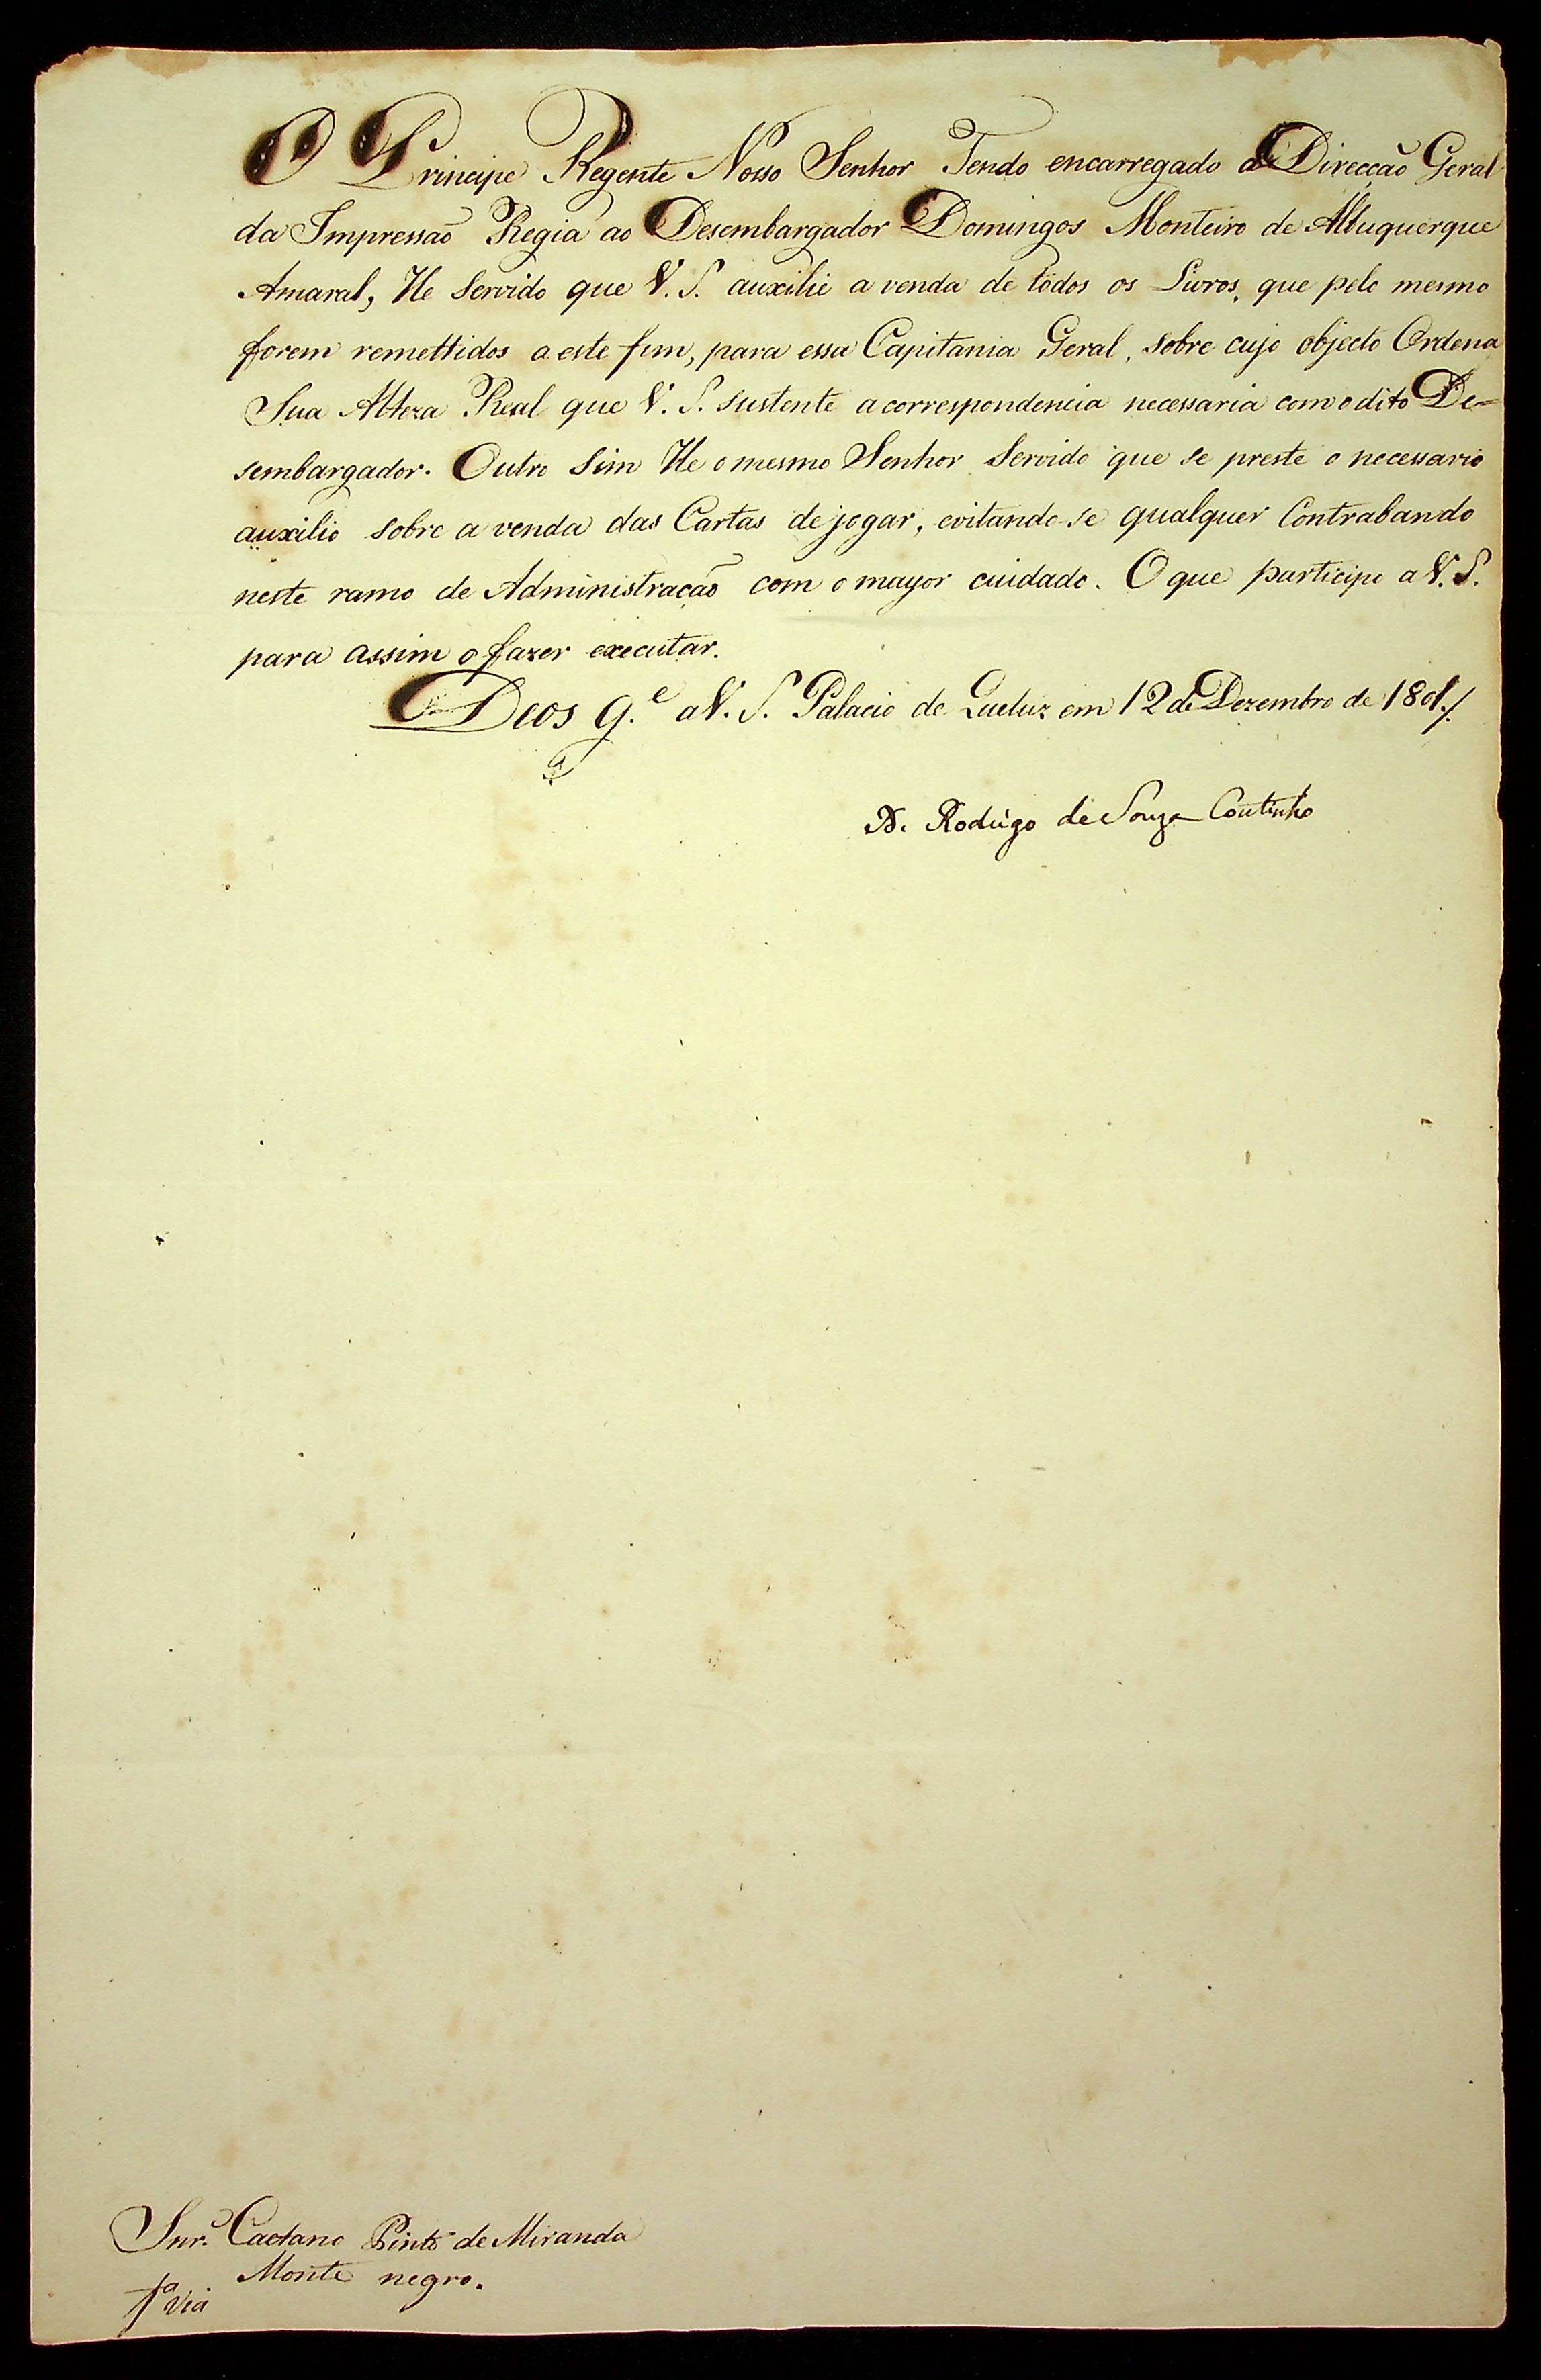 O Principe Regente Nosso Senhor Tendo encarregado a Direcção Geral
da Impressaõ Regia ao Desembargador Domingos Monteiro de Albuquerque
Amaral, He Servido que V. S. auxilie a venda de todos os Livros, que pelo mesmo
forem remettidos a este fim, para essa Capitania Geral, sobre cujo objecto Ordena
Sua Alteza Real que V. S. sustente a correspondencia necessaria com o dito De=
sembargador. Outro Sim He o mesmo Senhor Servido que se preste o necessario
auxilio sobre a venda das Cartas de jogar, evitando-se qualquer Contrabando
neste ramo de Administraçaõ com o mayor cuidado. O que participo a V. S.
para assim o fazer executar.
Deos g.e a V. S. Palacio de Queluz em 12 de Dezembro de 1801./.
D. Rodrigo de Souza Coutinho
Snr. Caetano Pinto de Miranda
Monte negro.
1a Via